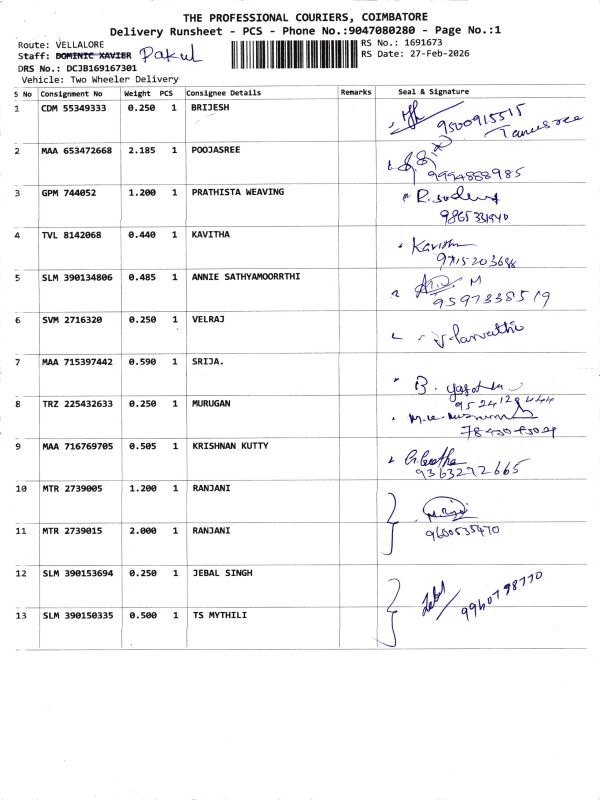 THE PROFESSIONAL COURIERS, COIMBATORE
Delivery Runsheet - PCS - Phone No.:9047080280 - Page No.:1
Route: VELLALORE
RS No.: 1691673
Staff: DOMINIC XAVIER Pakul
RS Date: 27-Feb-2026
DRS No.: DCJB169167301
Vehicle: Two Wheeler Delivery
S No Consignment No Weight PCS Consignee Details Remarks Seal & Signature
1 CDM 55349333 0.250 1 BRIJESH
9500915515
2 MAA 653472668 2.185 1 POOJASREE
9994888985
3 GPM 744052 1.200 1 PRATHISTA WEAVING
4 TVL 8142068 0.440 1 KAVITHA Kavitha
9715203688
5 SLM 390134806 0.485 1 ANNIE SATHYAMOORRTHI M
9597338519
6 SVM 2716320 0.250 1 VELRAJ
7 MAA 715397442 0.590 1 SRIJA. B.
8 TRZ 225432633 0.250 1 MURUGAN
9 MAA 716769705 0.505 1 KRISHNAN KUTTY G. Geetha
9363272665
10 MTR 2739005 1.200 1 RANJANI
9600535470
11 MTR 2739015 2.000 1 RANJANI
12 SLM 390153694 0.250 1 JEBAL SINGH
13 SLM 390150335 0.500 1 TS MYTHILI